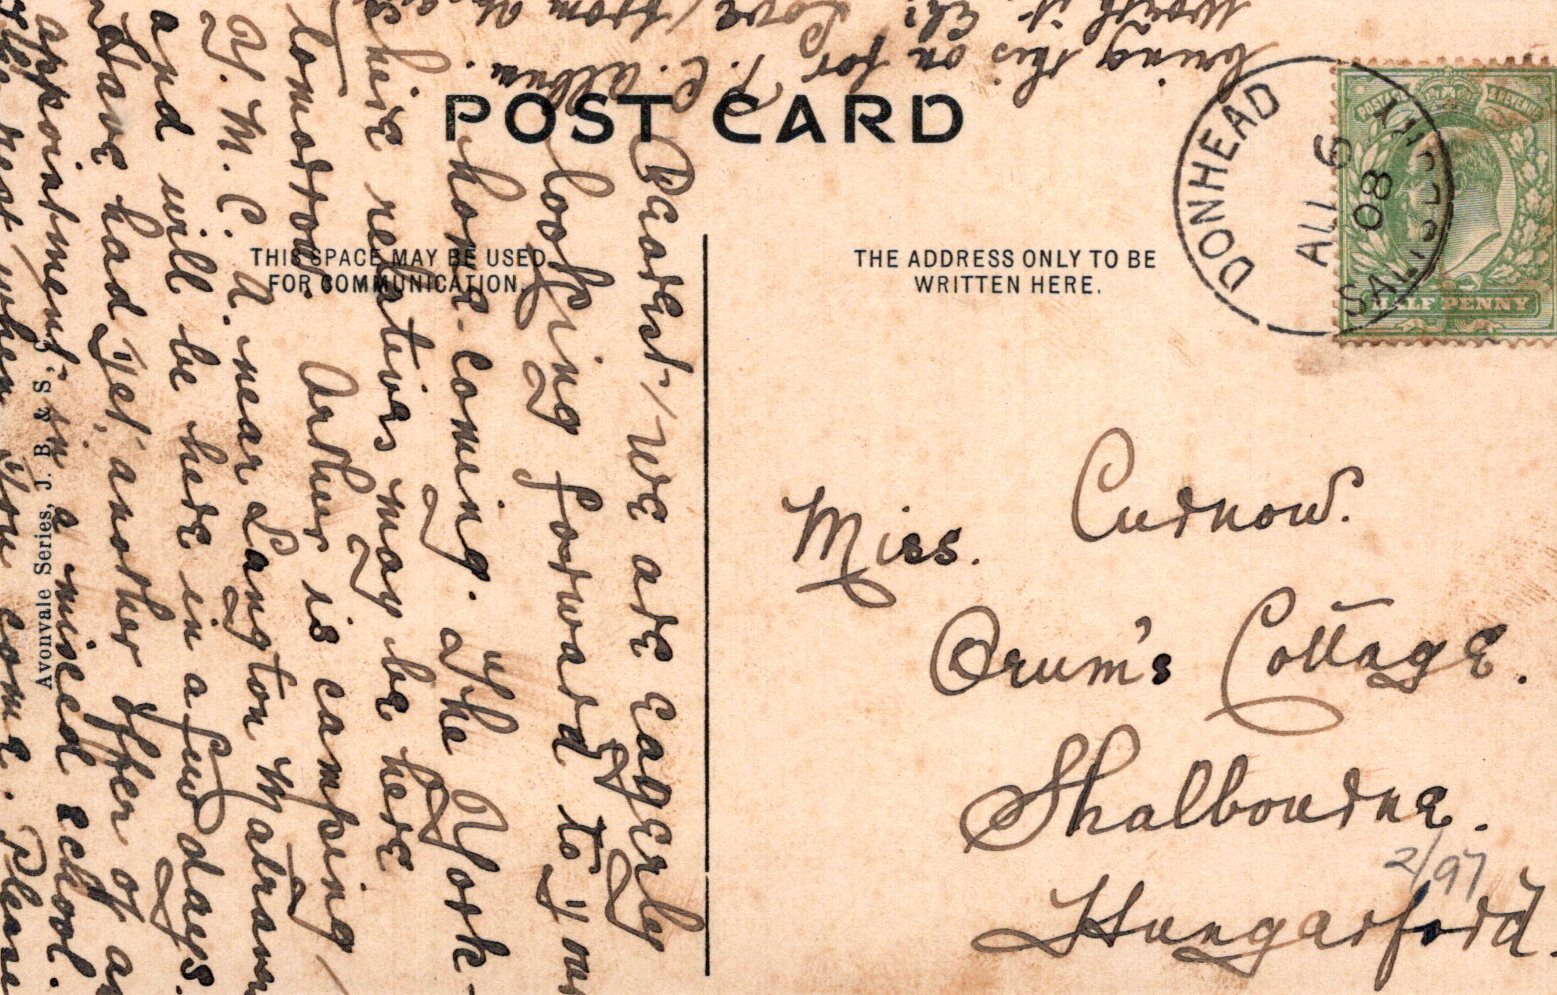 POST CARD
THIS SPACE MAY BE USED
FOR COMMUNICATION.
THE ADDRESS ONLY TO BE
WRITTEN HERE.
DONHEAD
AU 6
08
SALISBURY
POSTAGE & REVENUE
HALF PENNY
Miss. Curnow.
Orum's Cottage.
Shalbourne.
Hungarford.
2/97
Dearest, We are eagerly
looking forward to your
home-coming. The York-
shire relatives may be here
tomorrow. Arthur is camping
Y. M. C. A. near Langton Matravers
and will be here in a few days.
Have had yet another offer of an
appointment in a mixed school.
next when you come. Please
bring this on for P. C. album.
Worth it, Eh? Love from
Avonvale Series, J. B. & S.,